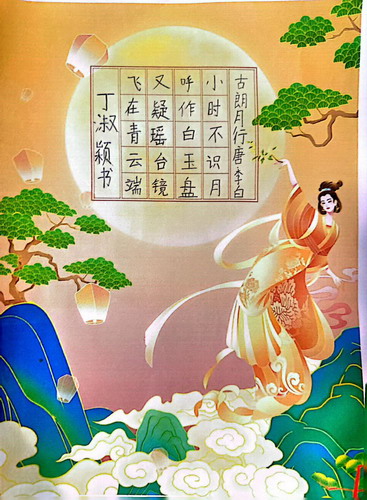 古朗月行唐李白
小时不识月
呼作白玉盘
又疑瑶台镜
飞在青云端
丁淑颖书